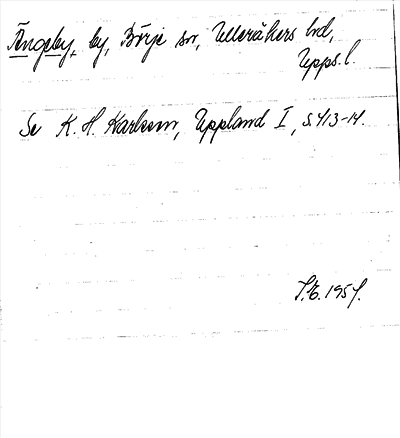 Ängeby, by, Börje sn, Ulleråkers hd,
Upps. l.
Se K. H. Karlsson, Uppland I, s. 413-14.
1957.